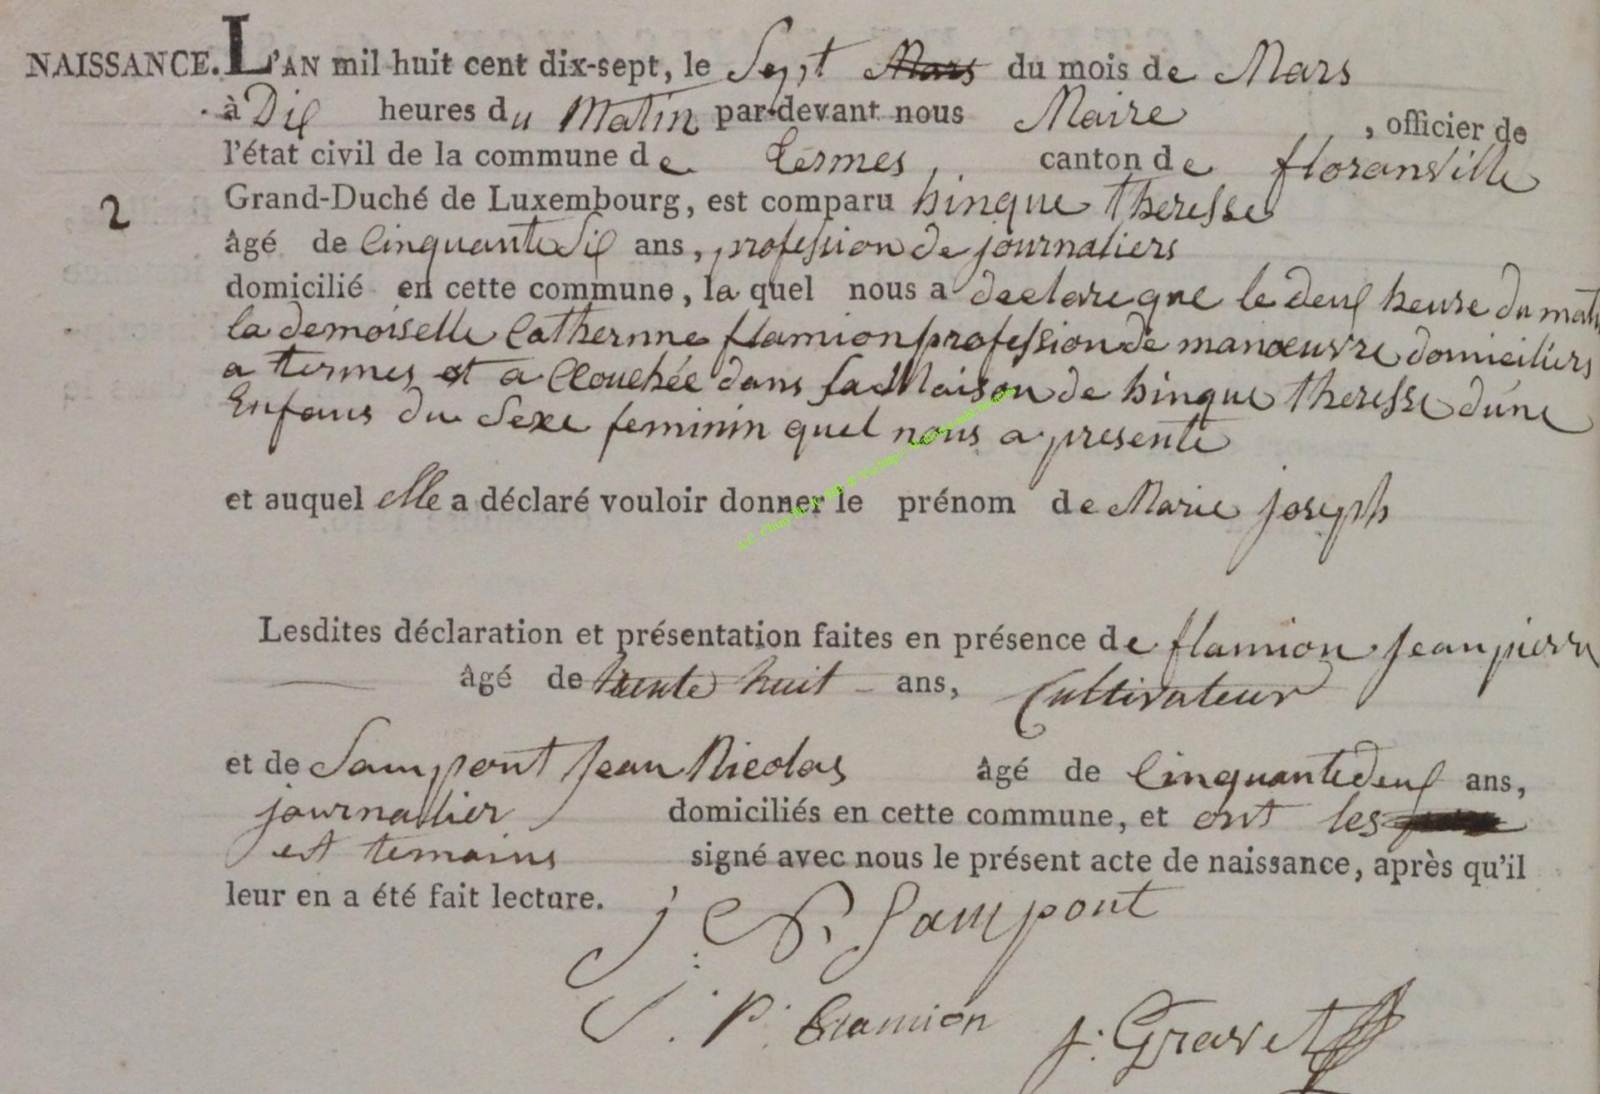 NAISSANCE. L'AN mil huit cent dix-sept, le Sept Mars du mois de Mars
à Dix heures du Matin par-devant nous Maire , officier de
l'état civil de la commune de termes, canton de floranville
2 Grand-Duché de Luxembourg, est comparu hinque theresse
âgé de Cinquante Six ans, profession de journaliers
domicilié en cette commune, la quel nous a declare que le deux heure du matin
la demoiselle Catherinne flamion profession de manœuvre domiciliers
a termes et a Couchée dans sa Maison de hinque theresse d'une
Enfans du Sexe feminin quel nous a presente
et auquel elle a déclaré vouloir donner le prénom de Marie joseph
Lesdites déclaration et présentation faites en présence de flamion jean pierre
âgé de trente huit ans, Cultivateur
et de Sampont jean Nicolas âgé de Cinquante deux ans,
journallier domiciliés en cette commune, et ont les
est temoins signé avec nous le présent acte de naissance, après qu'il
leur en a été fait lecture.
j N. Sampont
J. P. flamion j: Gravet